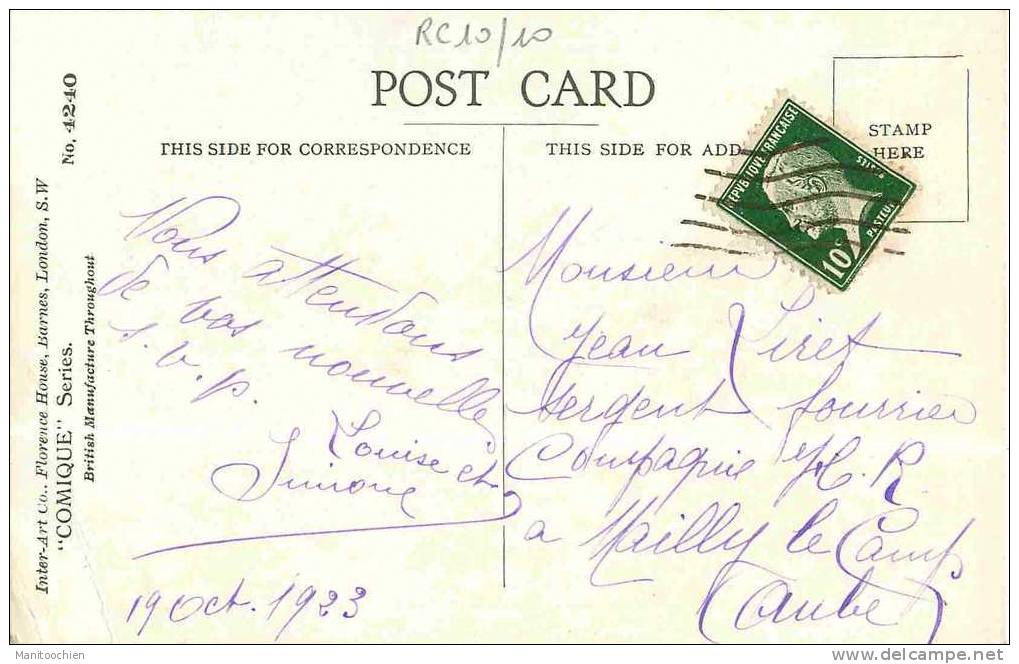 RC10/10
POST CARD
THIS SIDE FOR CORRESPONDENCE
THIS SIDE FOR ADD
STAMP
HERE
REPUBLIQUE FRANCAISE
POSTES
PASTEUR
10c
Inter-Art Co., Florence House, Barnes, London, S.W
"COMIQUE" Series.
No. 4240
British Manufacture Throughout
Vous attendons
de vos nouvelles
s. v. p.
Louise et
Simone
19 Oct. 1923
Monsieur
Jean Liret
sergent fourrier
Compagnie H. R
à Mailly le Camp
(Aube)
© Manitoochien
www.delcampe.net